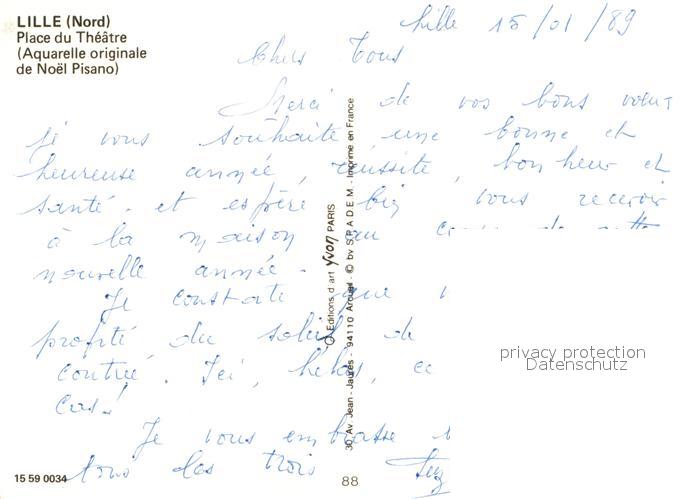 LILLE (Nord)
Place du Théâtre
(Aquarelle originale
de Noël Pisano)
Lille 15/01/89
Chers Tous
Merci de vos bons voeux
je vous souhaite une bonne et
heureuse année, réussite, bonheur et
santé. et espère bien vous recevoir
à la maison au de cette
nouvelle année.
Je constate que
profité du soleil de
contrée. Ici, hélas,
cas!
Je vous embrasse
tous les trois
15 59 0034
88
30, Av. Jean-Jaurès - 94110 Arcueil - © by S.P.A.D.E.M. - Imprimé en France
Editions d'art Yvon PARIS
privacy protection
Datenschutz